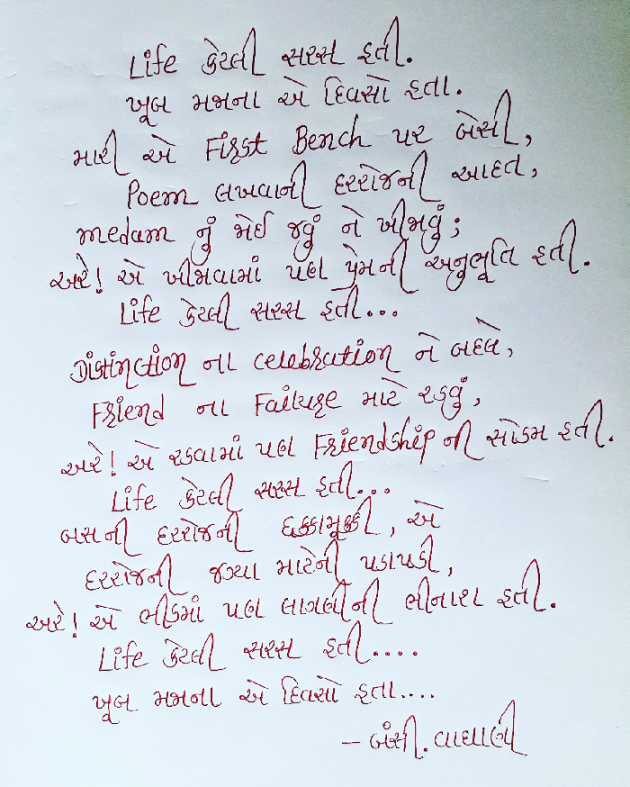 Life કેટલી સરસ હતી.
ખૂબ મજાના એ દિવસો હતા.
મારી એ First Bench પર બેસી,
Poem લખવાની દરરોજની આદત,
medam નું જોઈ જવું ને ખીજાવું;
અરે! એ ખીજાવામાં પણ પ્રેમની અનુભૂતિ હતી.
Life કેટલી સરસ હતી...
Distinction ના celebration ને બદલે,
Friend ના Failure માટે રડવું,
અરે! એ રડવામાં પણ Friendship ની સોડમ હતી.
Life કેટલી સરસ હતી...
બસની દરરોજની ધક્કામૂક્કી, એ
દરરોજની જગ્યા માટેની પડાપડી,
અરે! એ ભીડમાં પણ લાગણીની ભીનાશ હતી.
Life કેટલી સરસ હતી....
ખૂબ મજાના એ દિવસો હતા....
- બંસી. વાઘાણી